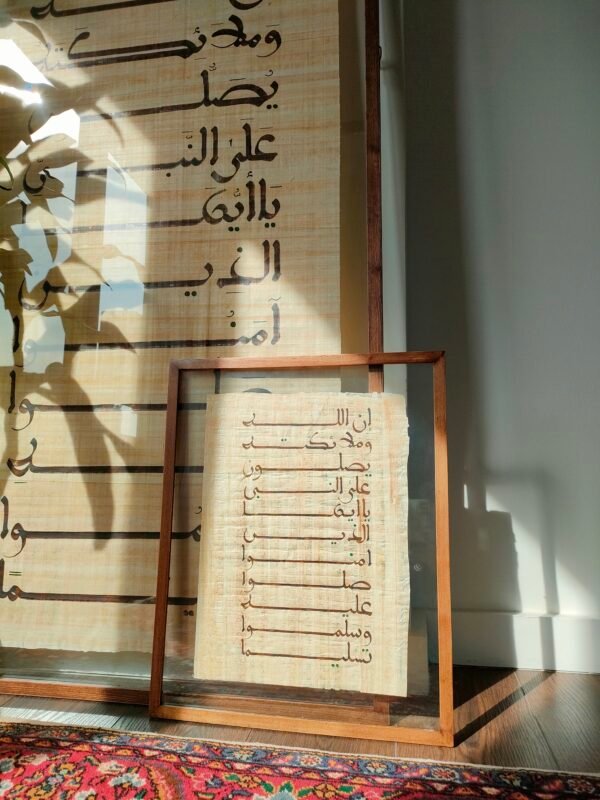 وملائكته
يُصَلُّ
عَلَى النَّبِيِّ
يَا أَيُّهَا
الَّذِين
آمَنُوا
ان الله
وملائكته
يصلون
على النبى
ياايها
الذين
امنوا
صلوا
عليه
وسلموا
تسليما